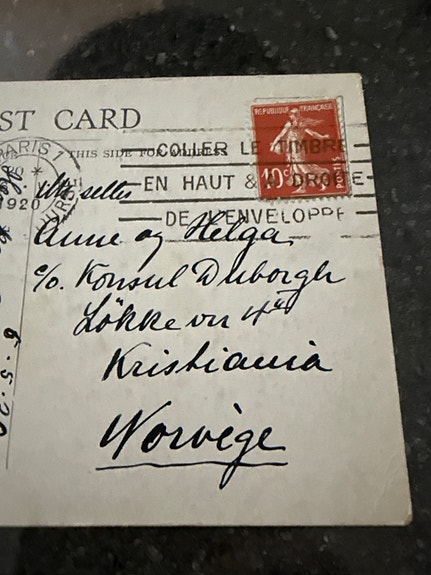 ST CARD
THIS SIDE FOR ADDRESS
REPUBLIQUE FRANÇAISE
10c
POSTES
PARIS 1
1920
COLLER LE TIMBRE
EN HAUT & A DROITE
DE L'ENVELOPPE
Anne og Helga
c/o. Konsul Duborgh
Løkkevn 4
Kristiania
Norvège
6.5.20